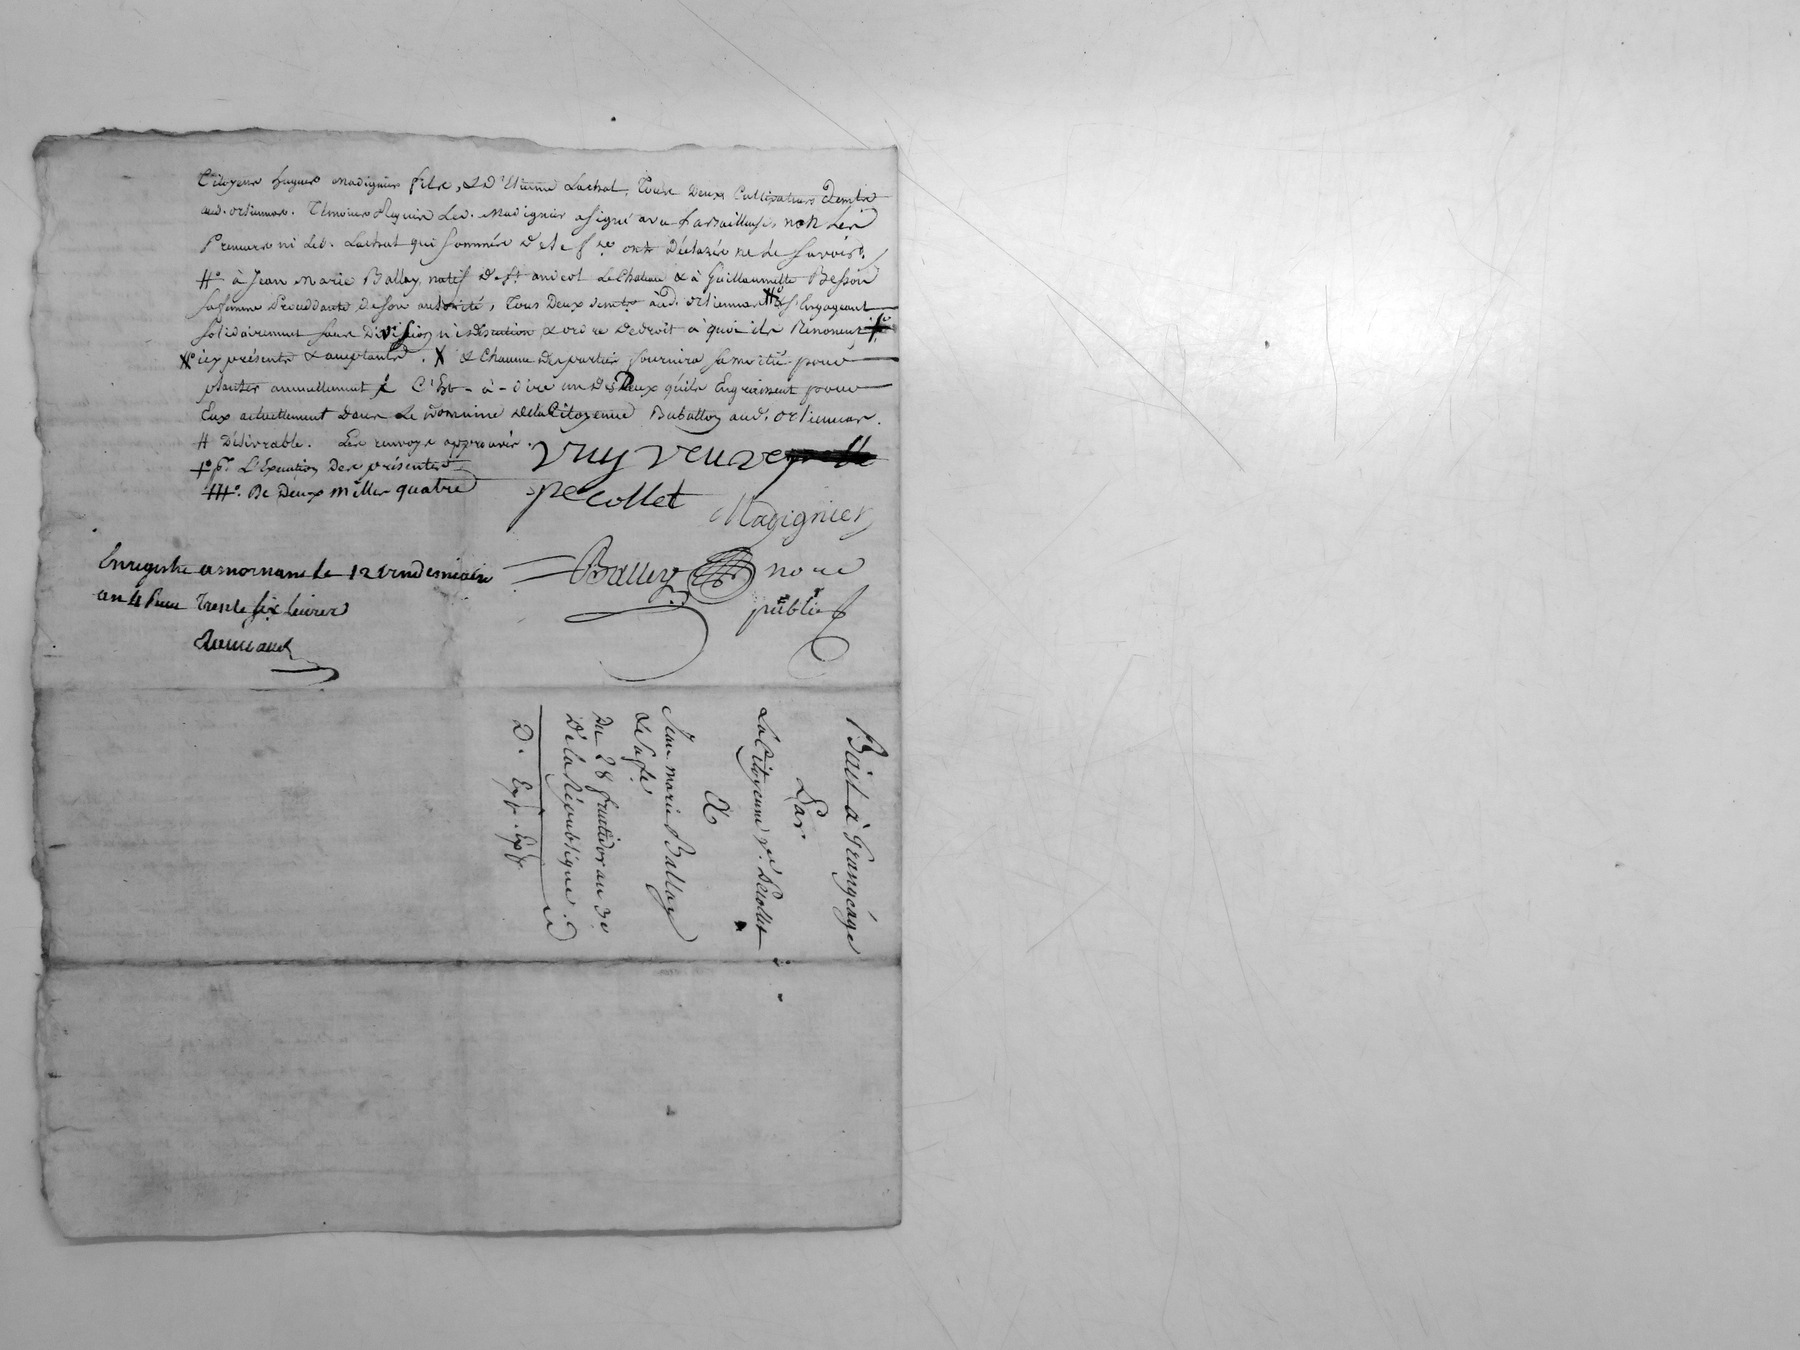 Citoyens hugues Madignier fils, & d'Etienne Lachal, Tous Deux Cultivateurs demt.
aud. orliennas. Témoins Requis Led. Madignier a signé avec non Les
Preneurs ni led. Lachal qui sommés de le fre. ont Déclarés ne le savoir.
#° à Jean Marie Ballay natif de St. andeol Le Chateau & à Guillaumette Besson
sa femme Procedante de son autorité, Tous Deux demts. aud. orliennas & s'Engageant
solidairement sans Division ni discution & ordre de droit à quoi ils Renoncent
icy présents & acceptants. X & Chacune Des parties fournira sa moitié pour
planter annuellement C'Est-à-dire un des Deux qu'ils Engraissent pour
Eux actuellement dans Le domaine de la Citoyenne aud. orliennas.
# Délivrable. Les renvoys approuvés.
+° pr. L'Execution Des présentes
###°. De Deux Milles quatre
Vuy veuve
pecollet
Madignier
Ballay nore
public
Enregistré a mornant le 12 Vendemiaire
an 4 Reçu Trente six livres
Bail à Grangeage
Par
La Citoyenne ve. Pécollet
A
Jean marie Ballay
& Sa fe.
Du 28 fructidor an 3e
De la République.
D. Exp. Exp.